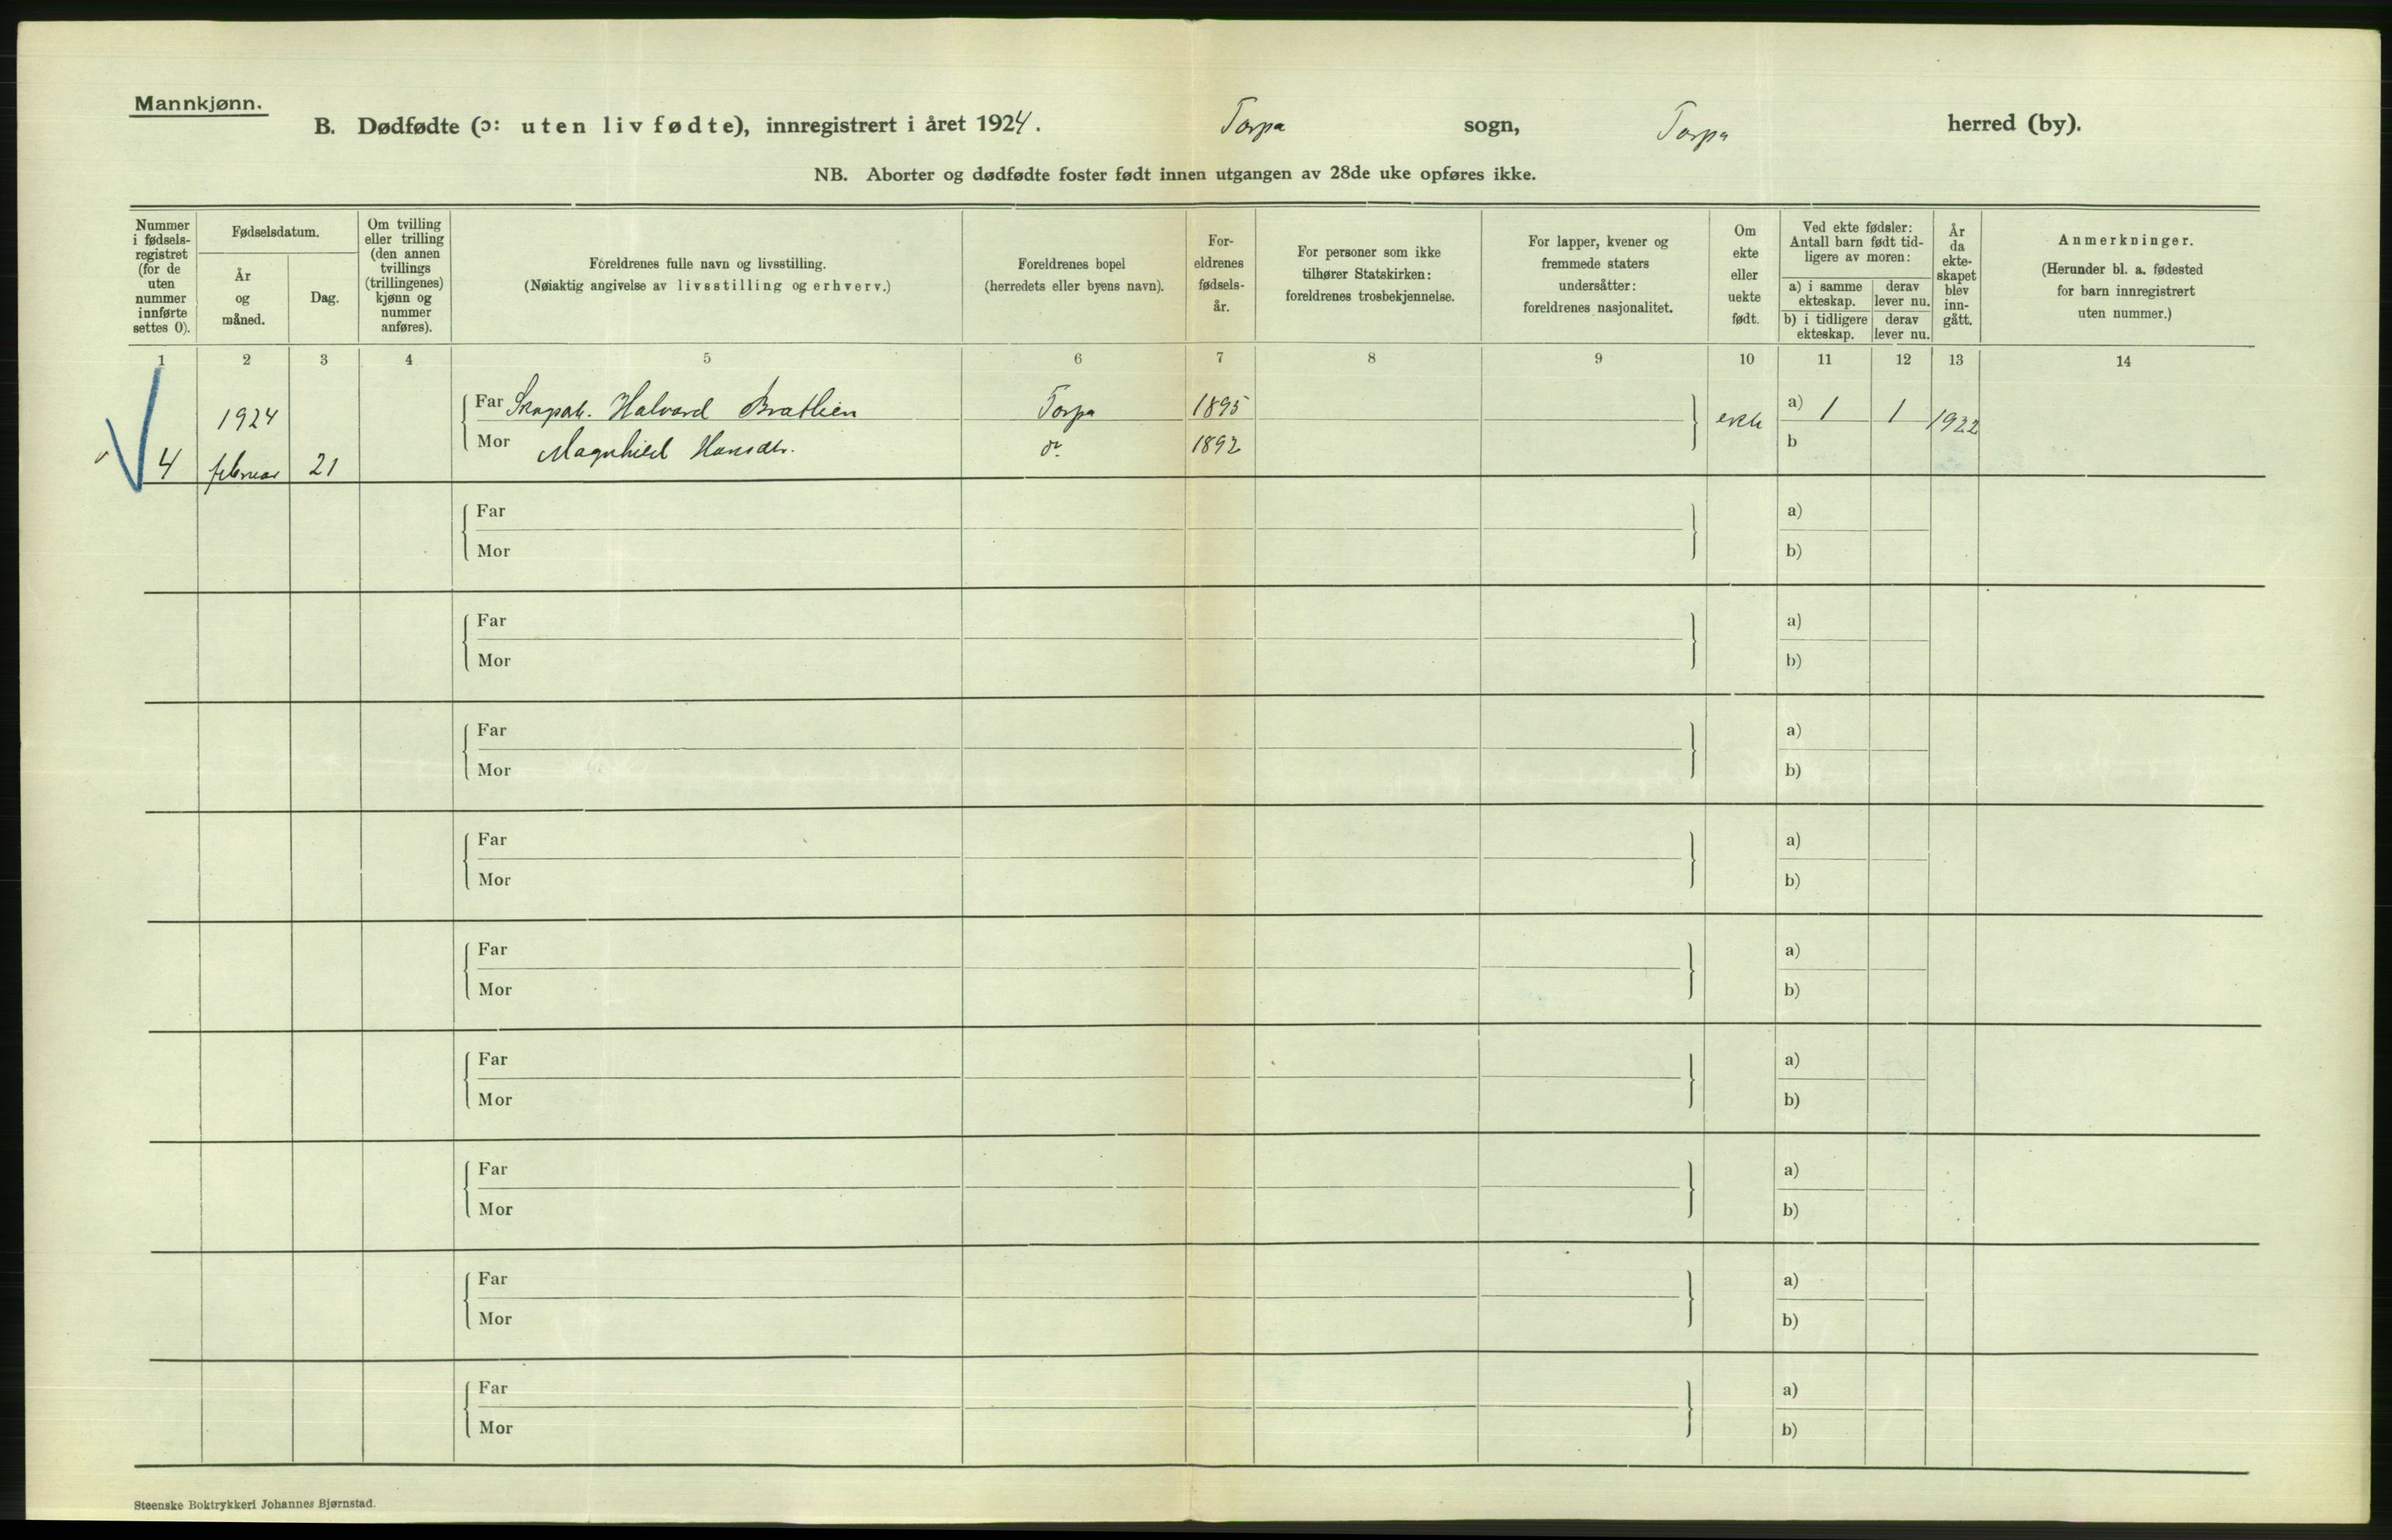 Mannkjønn.
B. Dødfødte (ɔ: uten liv fødte), innregistrert i året 1924. Torpa sogn, Torpa herred (by).
NB. Aborter og dødfødte foster født innen utgangen av 28de uke opføres ikke.
Nummer i fødsels-registret (for de uten nummer innførte settes 0).
Fødselsdatum.
År og måned.
Dag.
Om tvilling eller trilling (den annen tvillings (trillingenes) kjønn og nummer anføres).
Foreldrenes fulle navn og livsstilling.
(Nøiaktig angivelse av livsstilling og erhverv.)
Foreldrenes bopel
(herredets eller byens navn).
For-eldrenes fødsels-år.
For personer som ikke tilhører Statskirken: foreldrenes trosbekjennelse.
For lapper, kvener og fremmede staters undersåtter: foreldrenes nasjonalitet.
Om ekte eller uekte født.
Ved ekte fødsler: Antall barn født tid-ligere av moren:
a) i samme ekteskap. derav lever nu.
b) i tidligere ekteskap. derav lever nu.
År da ekte-skapet blev inn-gått.
Anmerkninger.
(Herunder bl. a. fødested for barn innregistrert uten nummer.)
1 2 3 4 5 6 7 8 9 10 11 12 13 14
1924 Far Halvard Brathien Torpa 1895 ekte a) 1 1 1922
4 februar 21 Mor Magnhild Hansdtr. do 1892 b
Far a)
Mor b)
Far a)
Mor b)
Far a)
Mor b)
Far a)
Mor b)
Far a)
Mor b)
Far a)
Mor b)
Far a)
Mor b)
Far a)
Mor b)
Far a)
Mor b)
Steenske Boktrykkeri Johannes Bjørnstad.